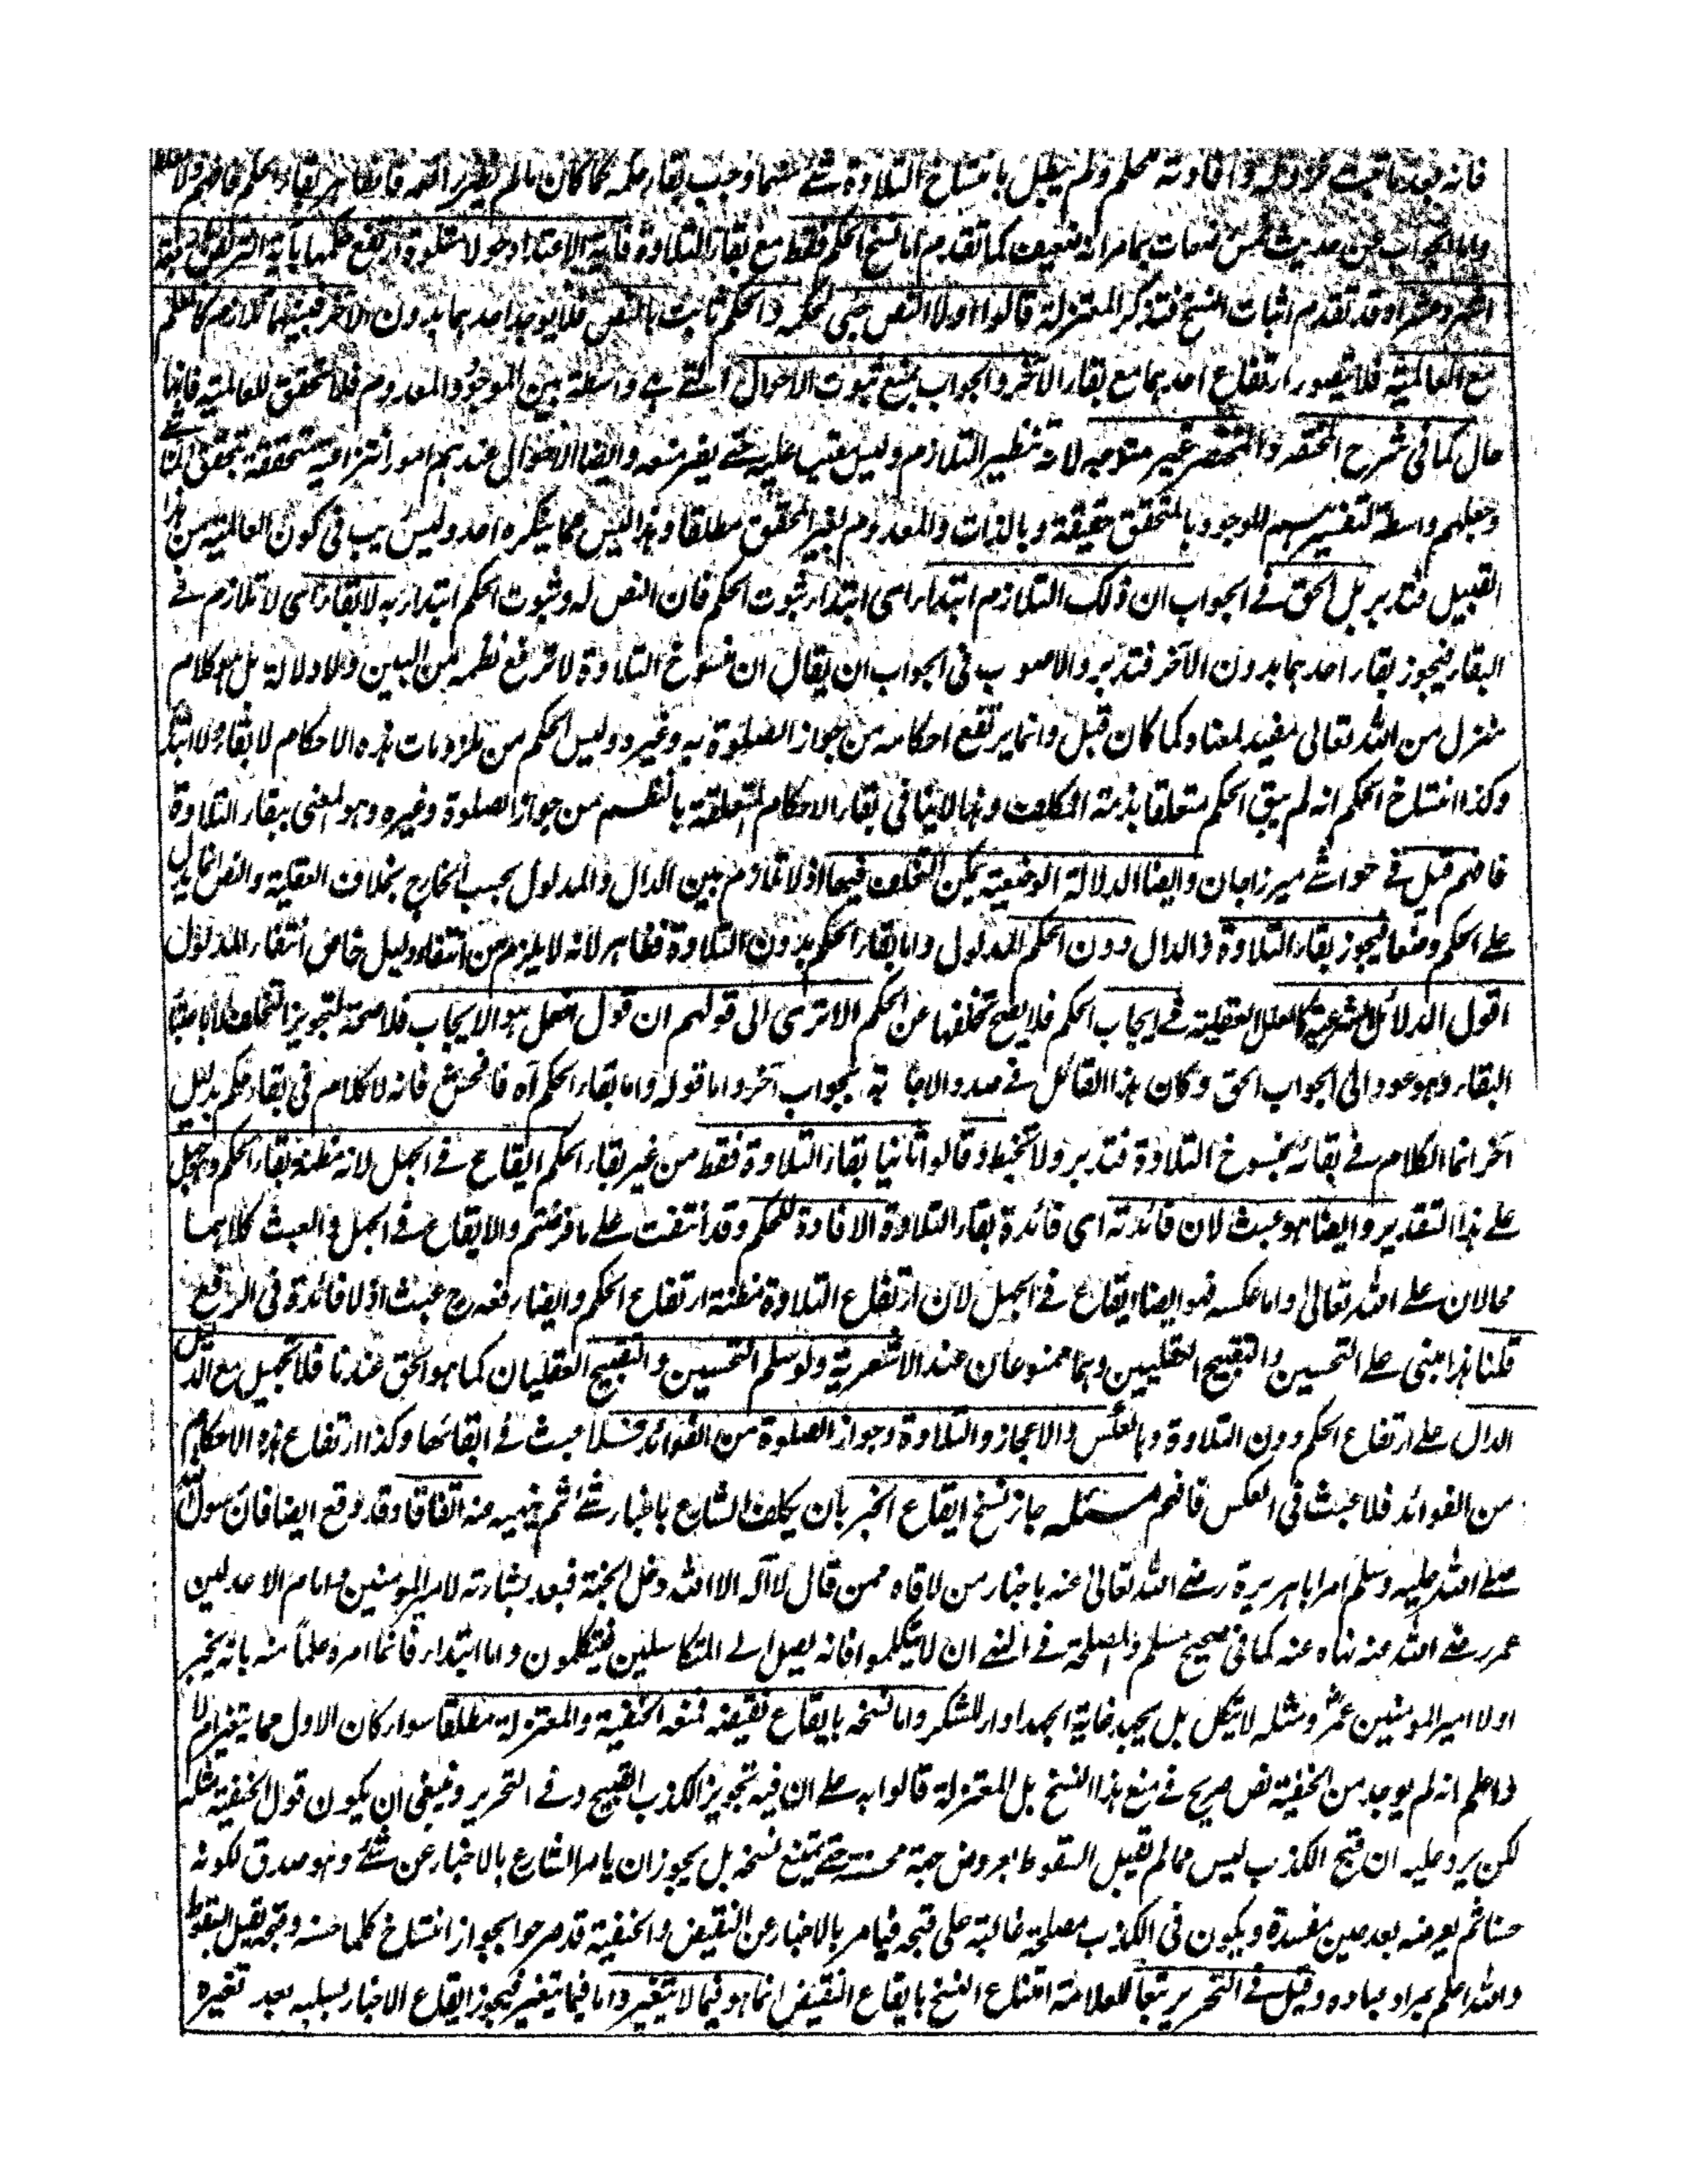 فانه بعد ثابت وافادته للحكم ولم يبطل بانتساخ التلاوة شئ منهما وجب بقاء حكمه كما كان مالم يظهر رافعه فالظاهر بقاء الحكم فافهم
واما الجواب عن حديث خمس رضعات بما مر انه ضعيف كما تقدم اما نسخ الحكم فقط مع بقاء التلاوة فآية الاعتداد حولا متلوة وارتفع حكمها بآية التربص اربعة
اشهر وعشرا وقد تقدم اثبات النسخ فتذكر المعتزلة قالوا اولا النص لحكمه والحكم ثابت بالنص فلا يوجد احدهما بدون الآخر فبينهما تلازم كالعلم
مع العالمية فلا يتصور ارتفاع احدهما مع بقاء الآخر والجواب بمنع ثبوت الاحوال التي هي واسطة بين الموجود والمعدوم فلا تحقق للعالمية فانها
حال كما في شرح المختصر والمختصر غير متوجه لانه تنظير التلازم وليس مقيسا عليه حتى يضر منعه وايضا الاحوال عندهم امور انتزاعية متحققة بتحقق المنشأ
وجعلهم واسطة لتفسيرهم الموجود بالمتحقق حقيقة وبالذات والمعدوم بغير المحقق مطلقا وهذا ليس مما ينكره احد وليس ريب في كون العالمية من هذا
القبيل فتدبر بل الحق في الجواب ان ذلك التلازم ابتداء اى ابتداء ثبوت الحكم فان النص له وثبوت الحكم ابتداء به لا بقاء اى لا تلازم في
البقاء فيجوز بقاء احدهما بدون الآخر فتدبر والاصوب في الجواب ان يقال ان منسوخ التلاوة لا ترفع نظمه من البين ولا دلالة بل هو كلام
منزل من الله تعالى مفيد لمعناه كما كان قبل وانما يرتفع احكامه من جواز الصلوة به وغيره وليس الحكم من ملزومات هذه الاحكام لا بقاء ولا ابتداء
وكذا انتساخ الحكم انه لم يبق الحكم متعلقا بذمة المكلف وهذا لا ينافي بقاء الاحكام المتعلقة بالنظم من جواز الصلوة وغيره وهو المعنى ببقاء التلاوة
فافهم قيل في حواشي ميرزاجان وايضا الدلالة الوضعية يمكن التخلف فيها اذ لا تلازم بين الدال والمدلول بحسب الخارج بخلاف العقلية والنص انما يدل
على الحكم وضعا فيجوز بقاء التلاوة الدال دون الحكم المدلول واما بقاء الحكم بدون التلاوة فظاهر لانه لا يلزم من انتفاء دليل خاص انتفاء المدلول
اقول الدلائل الشرعية كالعلل العقلية في ايجاب الحكم فلا يصح تخلفها عن الحكم الا ترى الى قولهم ان قول افعل هو الايجاب فلا صحة لتجويز التخلف الا باعتبار
البقاء وهو عود الى الجواب الحق وكان هذا القائل في صدد الاجابة بجواب آخر واما قوله واما بقاء الحكم آه فانحش فانه لا كلام في بقاء حكم بدليل
آخر انما الكلام في بقائه بمنسوخ التلاوة فتدبر ولا تخبط وقالوا ثانيا بقاء التلاوة فقط من غير بقاء الحكم ايقاع في الجهل لانه مظنة بقاء الحكم وهو جهل
على هذا التقدير وايضا هو عبث لان فائدته اى فائدة بقاء التلاوة الافادة للحكم وقد انتفت على ما فرضتم والايقاع في الجهل والعبث كلاهما
محالان على الله تعالى واما عكسه فهو ايضا ايقاع في الجهل لان ارتفاع التلاوة مظنة ارتفاع الحكم وايضا رفعه ح عبث اذ لا فائدة في الرفع
قلنا هذا مبنى على التحسين والتقبيح العقليين وهما ممنوعان عند الاشعرية ولو سلم التحسين والتقبيح العقليان كما هو الحق عندنا فلا تجهيل مع الدليل
الدال على ارتفاع الحكم دون التلاوة وبالعكس والاعجاز والتلاوة وجواز الصلوة من الفوائد فلا عبث في ابقائها وكذا ارتفاع هذه الاحكام
من الفوائد فلا عبث في العكس فافهم مسئله جاز نسخ ايقاع الخبر بان يكلف الشارع باخبار شئ ثم ينهيه عنه اتفاقا وقد وقع ايضا فان رسول الله
صلى الله عليه وسلم امر اباهريرة رضي الله تعالى عنه باخبار من لاقاه ممن قال لا اله الا الله دخل الجنة فبعد بشارته لامير المؤمنين وامام الاعدلين
عمر رضي الله عنه نهاه عنه كما في صحيح مسلم والمصلحة في النهي ان لا يتكلوا فانه يصل الى المتكاسلين فيتكلون واما ابتداء فانما امره علما منه بانه يخبر
اولا امير المؤمنين عمر ومثله لا يتكل بل يجهد غاية الجهد اداء للشكر واما نسخه بايقاع نقيضه فمنعه الحنفية والمعتزلة مطلقا سواء كان الاول مما يتغير ام لا
واعلم انه لم يوجد من الحنفية نص صريح في منع هذا النسخ بل المعتزلة قالوا به على ان فيه تجويز الكذب القبيح وفي التحرير وينبغي ان يكون قول الحنفية مثله
لكن يرد عليه ان قبح الكذب ليس مما لم يقبل السقوط بعروض جهة محسنة حتى يمتنع نسخه بل يجوز ان يامر الشارع بالاخبار عن شئ وهو صدق لكونه
حسنا ثم يعرضه بعد حين مفسدة ويكون في الكذب مصلحة غالبة على قبحه فيامر بالاخبار عن النقيض والحنفية قد صرحوا بجواز انتساخ كلما حسنه وقبحه يقبل السقوط
والله اعلم بمراد عباده وقيل في التحرير تبعا للعلامة امتناع النسخ بايقاع النقيض انما هو فيما لا يتغير واما فيما يتغير فيجوز ايقاع الاخبار بسلبه بعد تغيره